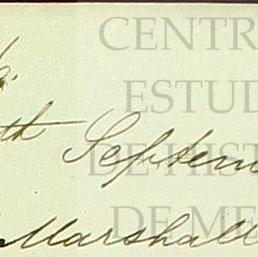 CENTR
ESTUD
th Septem
DE HIST
DE ME
Marshall